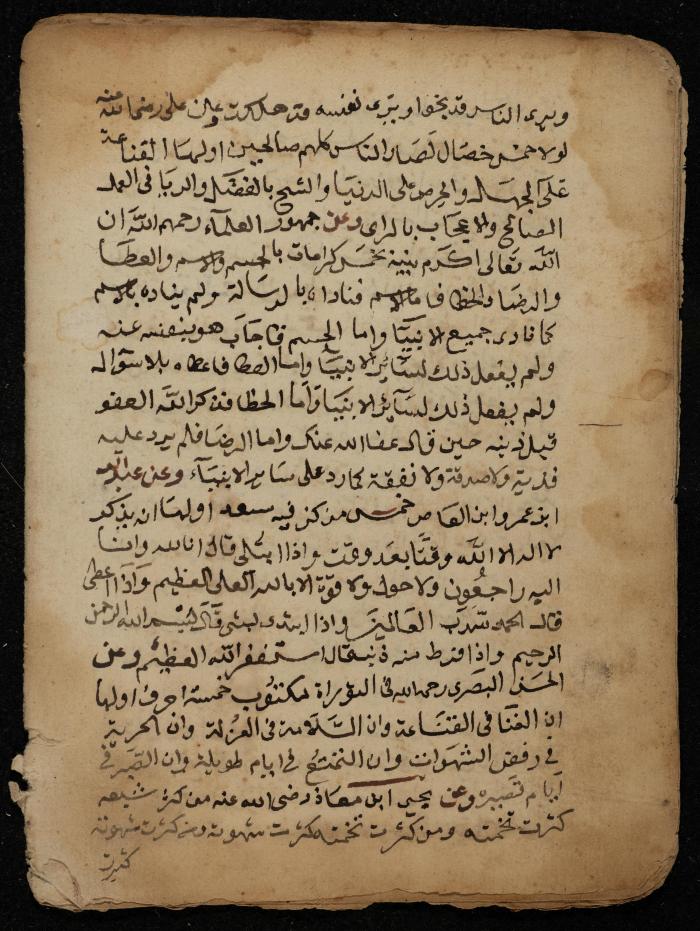 ويرى الناس قد نجوا ويرى نفسه قد هلكت وعن على رضى الله عنه
لولا خمس خصال لصار الناس كلهم صالحين اولها القناعة
على الجهل والحرص على الدنيا والشح بالفضل والريا في العمل
الصالح والاعجاب بالراى وعن جمهور العلمآء رحمهم الله ان
الله تعالى اكرم نبيه بخمس كرامات بالجسم والاسم والعطا
والرضا والخطا فاما الاسم فناداه بالرسالة ولم يناده بالاسم
كما نادى جميع الانبيا واما الجسم فاجاب هو بنفسه عنه
ولم يفعل ذلك لسائر الانبيا واما العطا فاعطاه بلا سؤاله
ولم يفعل ذلك لسآئر الانبيا واما الخطا فذكر الله العفو
قبل ذنبه حين قال عفا الله عنك واما الرضا فلم يرد عليه
فدية ولا صدقة ولا نفقة كما رد على ساير الانبيآء وعن عبد الله
ابن عمر وابن العاص خمس من كن فيه سعد اولها ان يذكر
لا اله الا الله وقتًا بعد وقت واذا ابتلى قال انا لله وانا
اليه راجعون ولا حول ولا قوة الا بالله العلى العظيم واذا اعطى
قال الحمد لله رب العالمين واذا ابتدء بشى قال بسم الله الرحمن
الرحيم واذا فرط منه ذنب قال استغفر الله العظيم وعن
الحسن البصرى رحمه الله في التوراة مكتوب خمسة احرف اولها
ان الغنا في القناعة وان السلامة في العزلة وان الحرية
في رفض الشهوات وان التمتع في ايام طويلة وان الصبر في
ايام قصيره وعن يحيى ابن معاذ رضى الله عنه من كثر شبعه
كثرت تخمته ومن كثرت تخمته كثرت شهوته ومن كثرت شهوته
كثرت